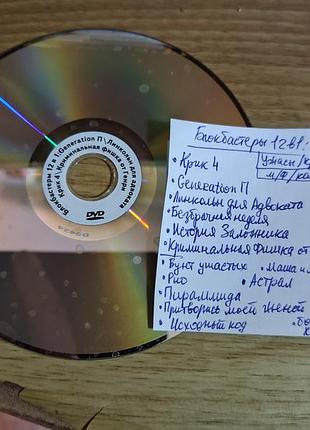 Блокбастеры 12 в 1\Generation П\Линкольн для адвоката
Крик 4\Криминальная фишка от Генри
DVD
Блокбастеры 12в1:
• Крик 4
Ужасы/
м/ф/
• Generation П
• Линкольн для Адвоката
• Безбрачная неделя
• История Заложника
• Криминальная Фишка от
• Бунт ушастых • Маша и
• Рио • Астрал
• Пирамммида
• Притворись моей женой
• Исходный код